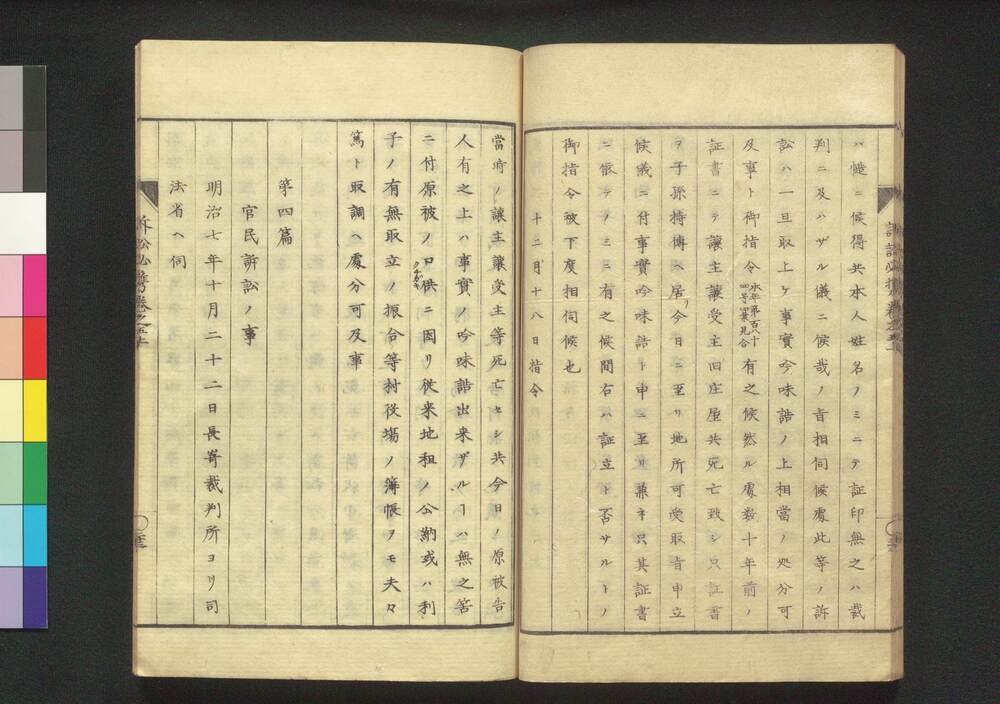 ハ慥ニ候得共本人姓名ノミニテ証印無之ハ裁
判ニ及ハザル儀ニ候哉ノ旨相伺候處此等ノ訴
訟ハ一旦取上ケ事實吟味詰ノ上相當ノ処分可
及事ト御指令本年第百八十四号四葉見合有之候然ル處数十年前ノ
証書ニテ讓主讓受主旧庄屋共死亡致シ只証書
ヲ子孫持傳ヘ居リ今日ニ至リ地所可受取旨申立
候儀ニ付事實吟味詰ト申ニ至リ兼キ只其証書
ニ依テノミニ有之候間右ハ証立ト否サルトノ
御指令被下度相伺候也
十二月十八日指令
當時ノ讓主讓受主等死亡セシ共今日ノ原被告
人有之上ハ事實ノ吟味詰出来ザルヿハ無之筈
ニ付原被ノ口供クチガキニ因リ従来地租ノ公納或ハ利
子ノ有無取立ノ振合等村役場ノ簿帳ヲモ夫々
篤ト取調ヘ處分可及事
第四篇
官民訴訟ノ事
明治七年十月二十二日長崎裁判所ヨリ司
法省ヘ伺
訴訟必携巻之五